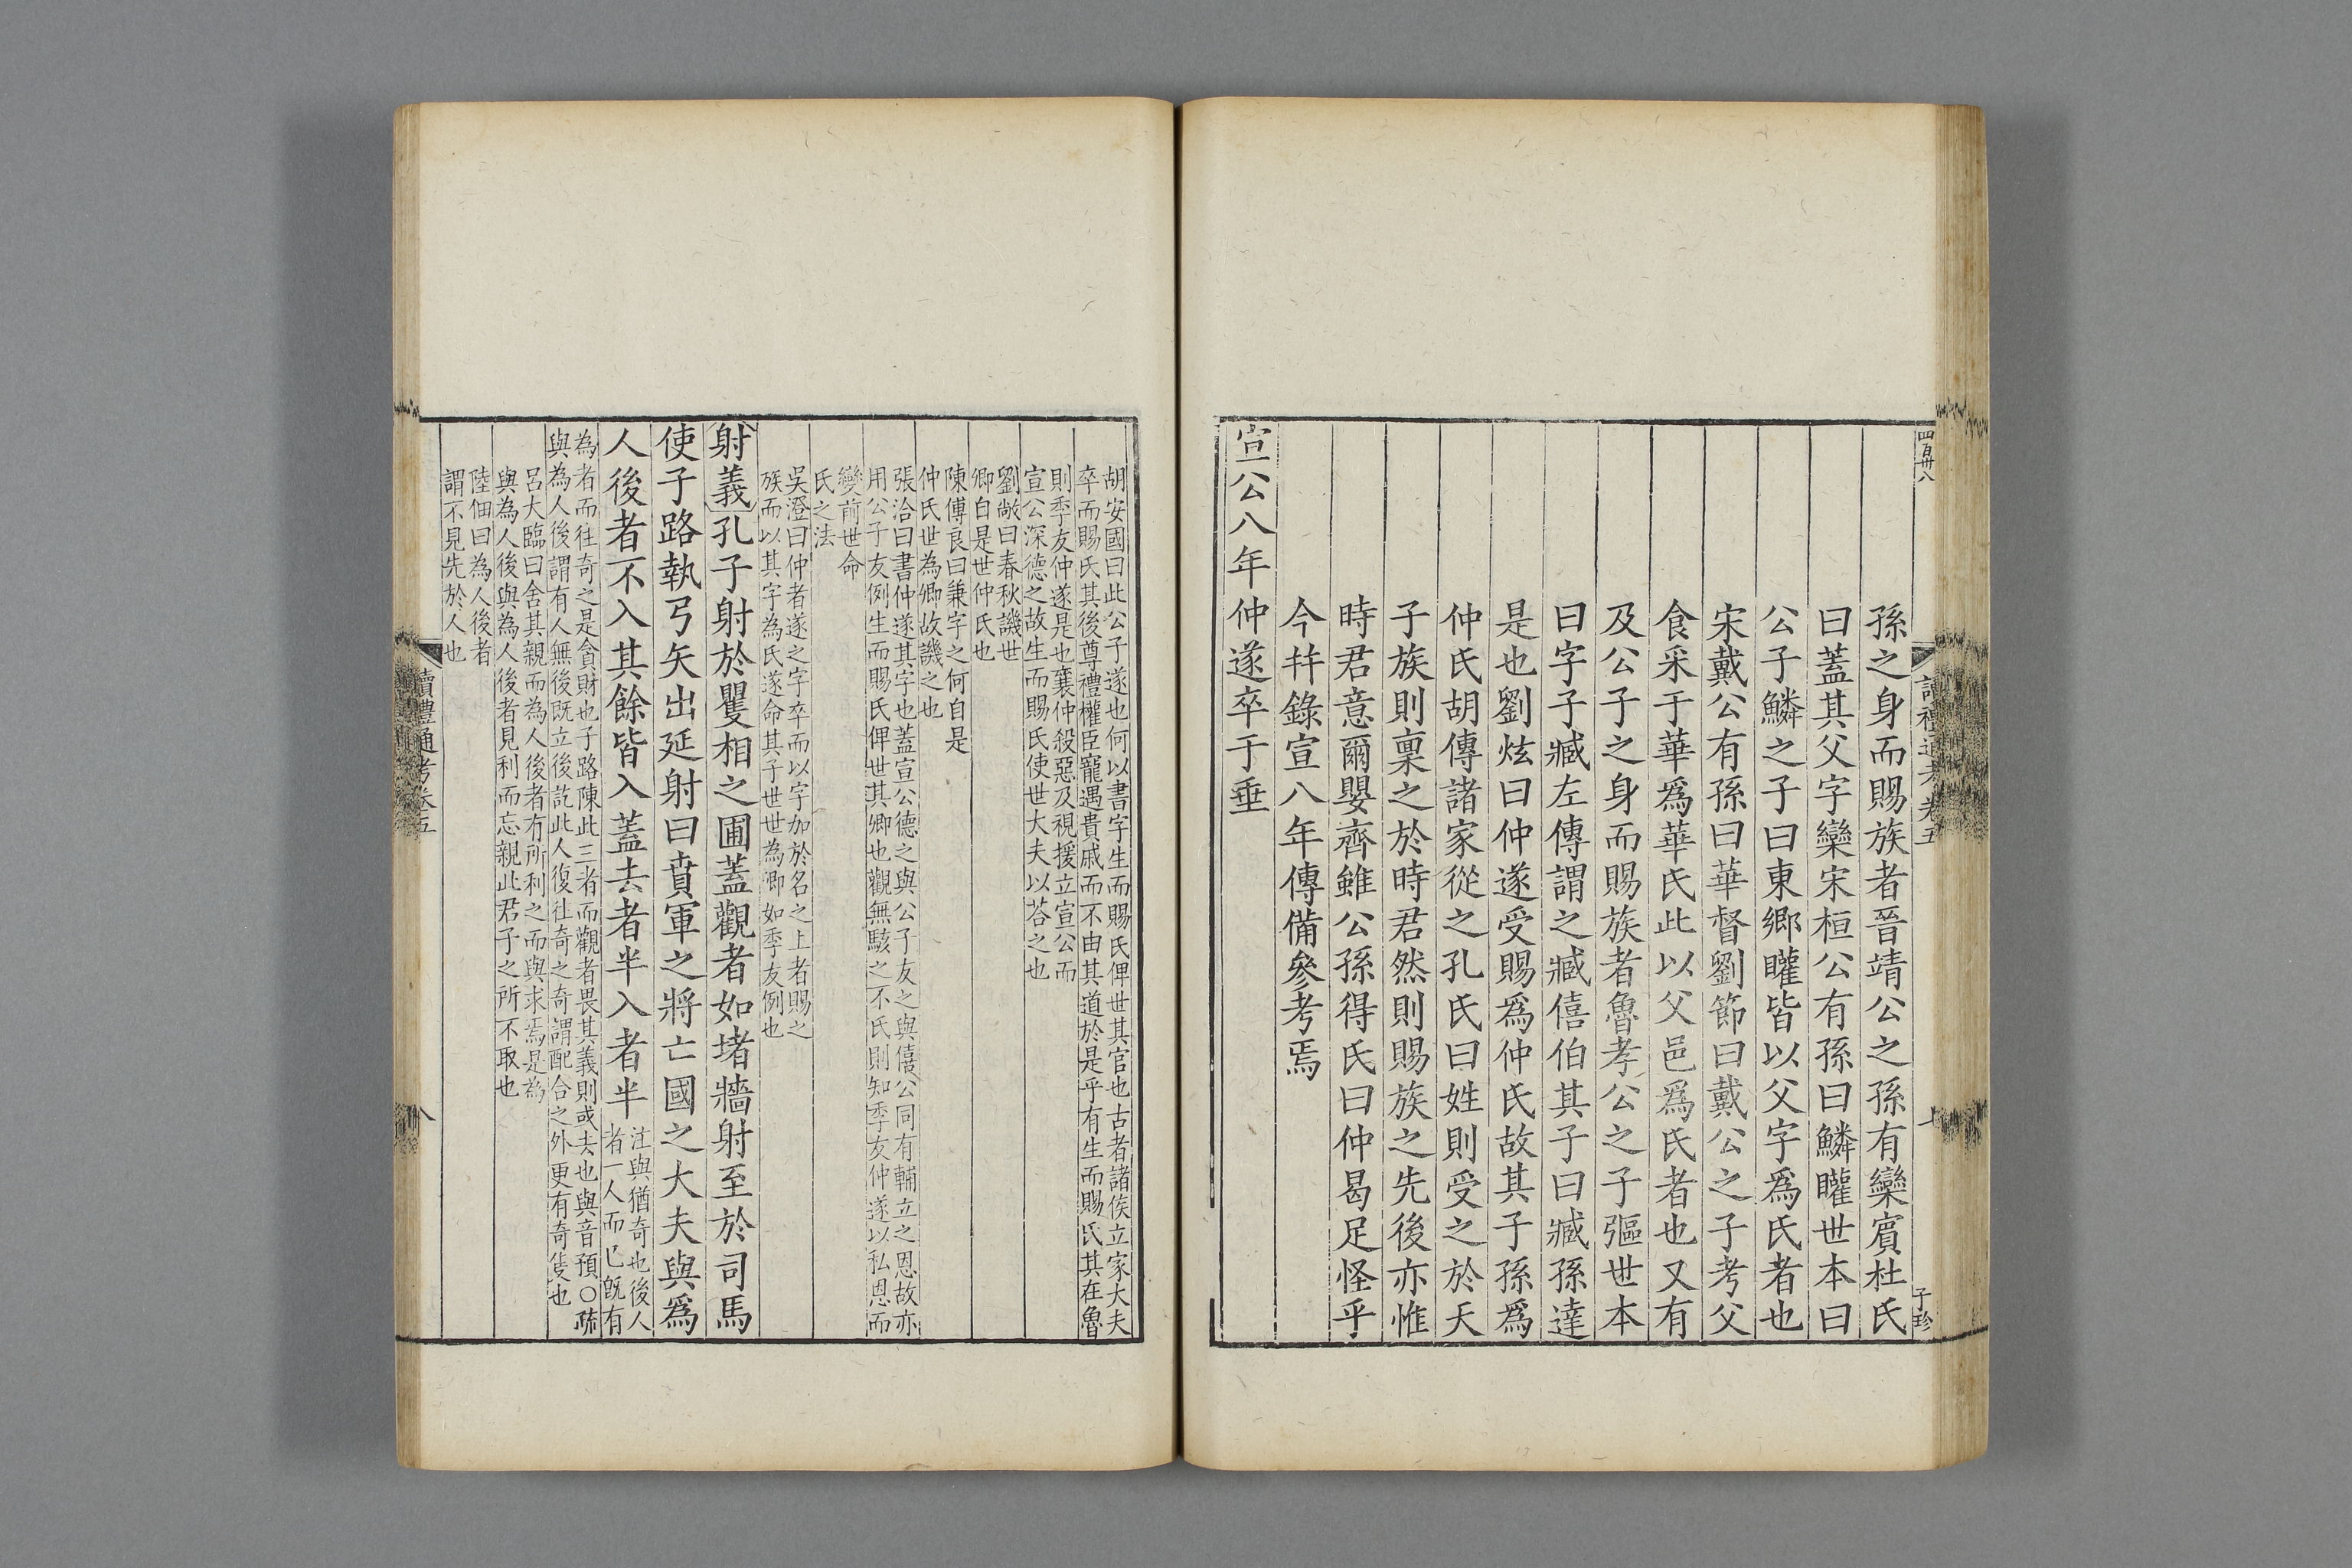 四百卅八
讀禮通考卷五
七
子珍
孫之身而賜族者晉靖公之孫有欒賓杜氏
曰蓋其父字欒宋桓公有孫曰鱗矔世本曰
公子鱗之子曰東鄉矔皆以父字爲氏者也
宋戴公有孫曰華督劉節曰戴公之子考父
食采于華爲華氏此以父邑爲氏者也又有
及公子之身而賜族者魯孝公之子彄世本
曰字子臧左傳謂之臧僖伯其子曰臧孫達
是也劉炫曰仲遂受賜爲仲氏故其子孫爲
仲氏胡傳諸家從之孔氏曰姓則受之於天
子族則稟之於時君然則賜族之先後亦惟
時君意爾嬰齊雖公孫得氏曰仲曷足怪乎
今幷錄宣八年傳備參考焉
宣公八年仲遂卒于垂
胡安國曰此公子遂也何以書字生而賜氏俾世其官也古者諸侯立家大夫
卒而賜氏其後尊禮權臣寵遇貴戚而不由其道於是乎有生而賜氏其在魯
則季友仲遂是也襄仲殺惡及視援立宣公而
宣公深德之故生而賜氏使世大夫以荅之也
劉敞曰春秋譏世
卿自是世仲氏也
陳傅良曰兼字之何自是
仲氏世為卿故譏之也
張洽曰書仲遂其字也蓋宣公德之與公子友之與僖公同有輔立之恩故亦
用公子友例生而賜氏俾世其卿也觀無駭之不氏則知季友仲遂以私恩而
變前世命
氏之法
吳澄曰仲者遂之字卒而以字加於名之上者賜之
族而以其字為氏遂命其子世世為卿如季友例也
射義孔子射於矍相之圃蓋觀者如堵牆射至於司馬
使子路執弓矢出延射曰賁軍之將亡國之大夫與爲
人後者不入其餘皆入蓋去者半入者半
注與猶奇也後人
者一人而已旣有
為者而往奇之是貪財也子路陳此三者而觀者畏其義則或去也與音預○疏
與為人後謂有人無後旣立後訖此人復往奇之奇謂配合之外更有奇隻也
呂大臨曰舍其親而為人後者有所利之而與求焉是為
與為人後與為人後者見利而忘親此君子之所不取也
陸佃曰為人後者
謂不見先於人也
讀禮通考卷五
八